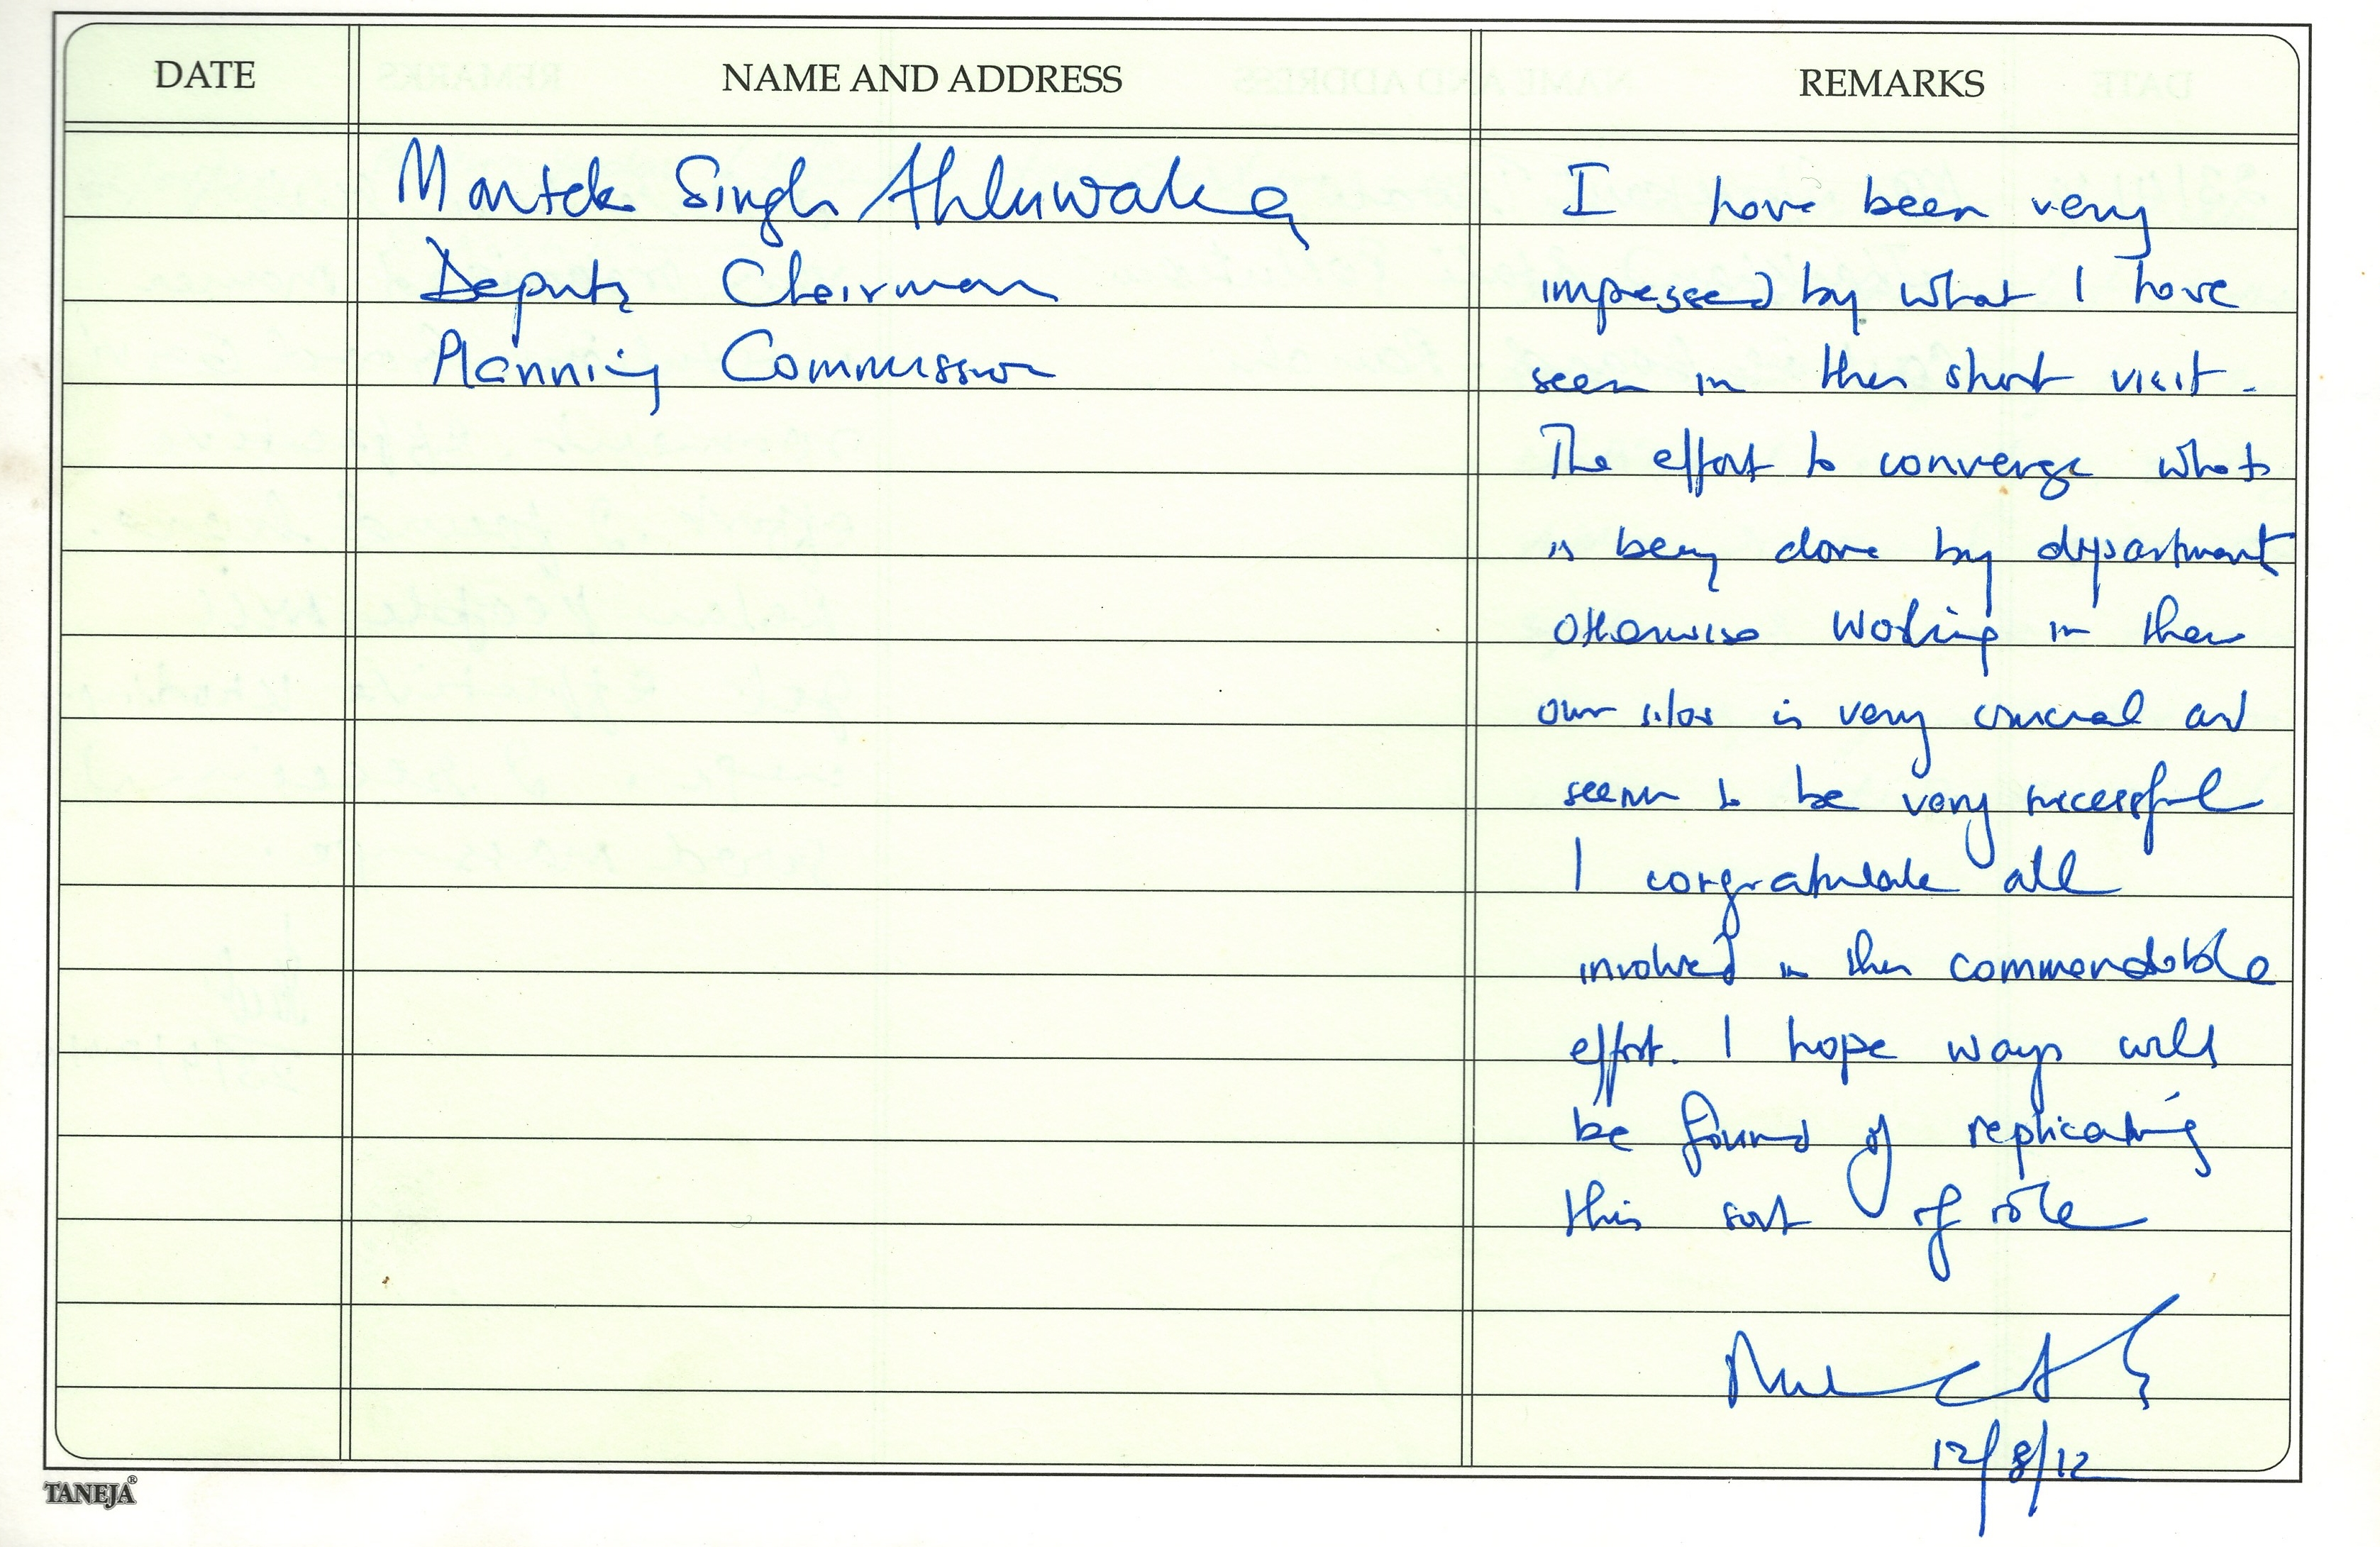 DATE
NAME AND ADDRESS
REMARKS
Montek Singh Ahluwalia
Deputy Chairman
Planning Commission
I have been very
impressed by what I have
seen in this short visit.
The effort to converge what
is being done by department
otherwise working in their
own silos is very crucial and
seems to be very successful
I congratulate all
involved in this commendable
effort. I hope ways will
be found of replicating
this sort of role
12/8/12
TANEJA®